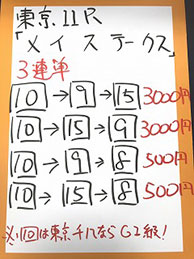 東京11R
「メイステークス」
3連単
10→9→15 3000円
10→15→9 3000円
10→9→8 500円
10→15→8 500円
※10は東京千八ならG2級!